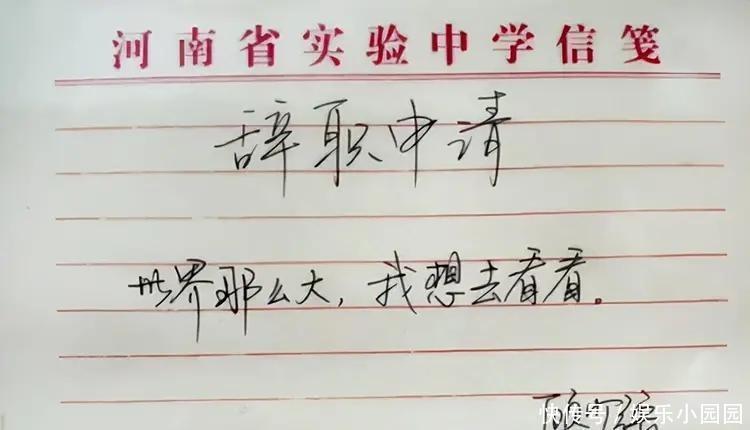 河南省实验中学信笺
辞职申请
世界那么大，我想去看看。
快传号/娱乐小园园